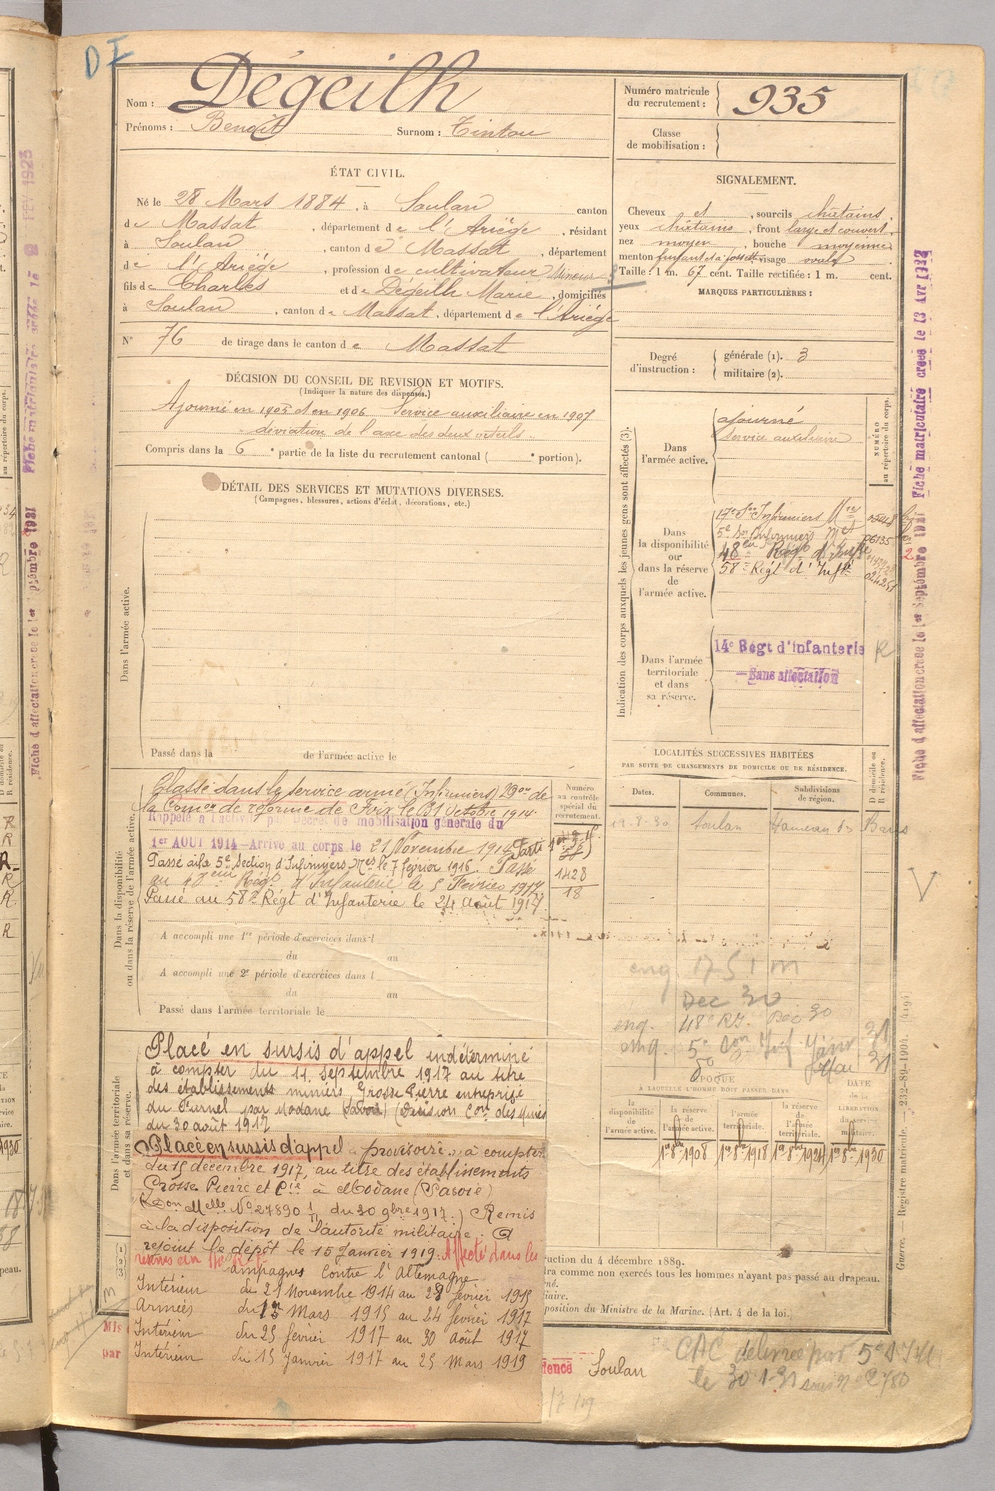 DI
Nom : Dégeilh
Prénoms : Benoît Surnom : Tintou
Numéro matricule du recrutement : 935
Classe de mobilisation :
ÉTAT CIVIL.
Né le 28 Mars 1884, à Soulan canton
de Massat, département de l'Ariège, résidant
à Soulan, canton de Massat, département
de l'Ariège, profession de cultivateur Mineur
fils de Charles et de Dégeilh Marie, domiciliés
à Soulan, canton de Massat, département de l'Ariège
N° 76 de tirage dans le canton de Massat
SIGNALEMENT.
Cheveux et, sourcils châtains,
yeux châtains, front large et couvert,
nez moyen, bouche moyenne
menton fuyant à fossette visage ovale
Taille : 1 m. 67 cent. Taille rectifiée : 1 m. cent.
MARQUES PARTICULIÈRES :
Degré d'instruction : générale (1). 3
militaire (2).
DÉCISION DU CONSEIL DE REVISION ET MOTIFS.
(Indiquer la nature des dispenses.)
Ajourné en 1905 et en 1906 Service auxiliaire en 1907
déviation de l'axe des deux
Compris dans la 6e partie de la liste du recrutement cantonal ( e portion).
DÉTAIL DES SERVICES ET MUTATIONS DIVERSES.
(Campagnes, blessures, actions d'éclat, décorations, etc.)
Dans l'armée active.
Passé dans la de l'armée active le
Indication des corps auxquels les jeunes gens sont affectés (3).
NUMÉRO au répertoire du corps.
Dans l'armée active.
ajourné
Service auxiliaire
Dans la disponibilité ou dans la réserve de l'armée active.
17e Son Infirmiers Mres
5e Son Infirmiers Mres
48eme Régt d'Infie
58e Régt d'Infie
Dans l'armée territoriale et dans sa réserve.
14e Régt d'Infanterie
Sans affectation
R
LOCALITÉS SUCCESSIVES HABITÉES
PAR SUITE DE CHANGEMENTS DE DOMICILE OU DE RÉSIDENCE.
Dates. Communes. Subdivisions de région. D domicile ou R résidence.
19-8-30 Soulan Hameau de
Dans la disponibilité ou dans la réserve de l'armée active.
Classé dans le service armé (Infirmiers) Don de
la Comon de réforme de Foix le 31 octobre 1914
Rappelé à l'activité par Décret de mobilisation générale du
1er AOUT 1914 – Arrivé au corps le 21 Novembre 1914
Passé à la 5e Section d'Infirmiers Mres le 7 février 1916. Passé
au 48eme Régt d'Infanterie le 5 Février 1917
Passé au 58e Régt d'Infanterie le 24 août 1917
Numéro au contrôle spécial du recrutement.
1428
18
A accompli une 1re période d'exercices dans l
du au
A accompli une 2e période d'exercices dans l
du au
Passé dans l'armée territoriale le
Dec 30
48e RI. Dec 30
Dans l'armée territoriale et dans sa réserve.
Placé en sursis d'appel indéterminé
à compter du 11 Septembre 1917 au titre
des établissements miniers Grosse Pierre entreprise
du Furnel par Modane (Savoie) (Décision des Mines
du 30 août 1917
Placé en sursis d'appel provisoire, à compter
du 1er décembre 1917, au titre des établissements
Grosse Pierre et Cie à Modane (Savoie)
(Don Melle No 27890 du 30 9bre 1917.) Remis
à la disposition de l'autorité militaire. a
rejoint le dépôt le 15 Janvier 1919. Affecté dans les
réserves au
Campagnes Contre l'Allemagne
Intérieur du 21 Novembre 1914 au 28 février 1915
Armées du 1er Mars 1915 au 24 février 1917
Intérieur du 25 février 1917 au 30 août 1917
Intérieur du 15 Janvier 1917 au 25 Mars 1919
ÉPOQUE
À LAQUELLE L'HOMME DOIT PASSER DANS
DATE de la LIBÉRATION du service militaire.
la disponibilité de l'armée active. la réserve de l'armée active. l'armée territoriale. la réserve de l'armée territoriale.
1er 8bre 1908 1er 8bre 1918 1er 8bre 1924 1er 8bre 1930
ruction du 4 décembre 1889.
ra comme non exercés tous les hommes n'ayant pas passé au drapeau.
position du Ministre de la Marine. (Art. 4 de la loi.)
dence Soulan
CAC délivrée par
le 30-1-31 sous No 2780
Guerre. — Registre matricule. — 232-89-1905. [4194]
Fiche d'affectation créée le 1er Septembre 1931 Fiche matriculaire créée le 13 Avr 1932
Fiche d'affectation créée le 1er Septembre 1931